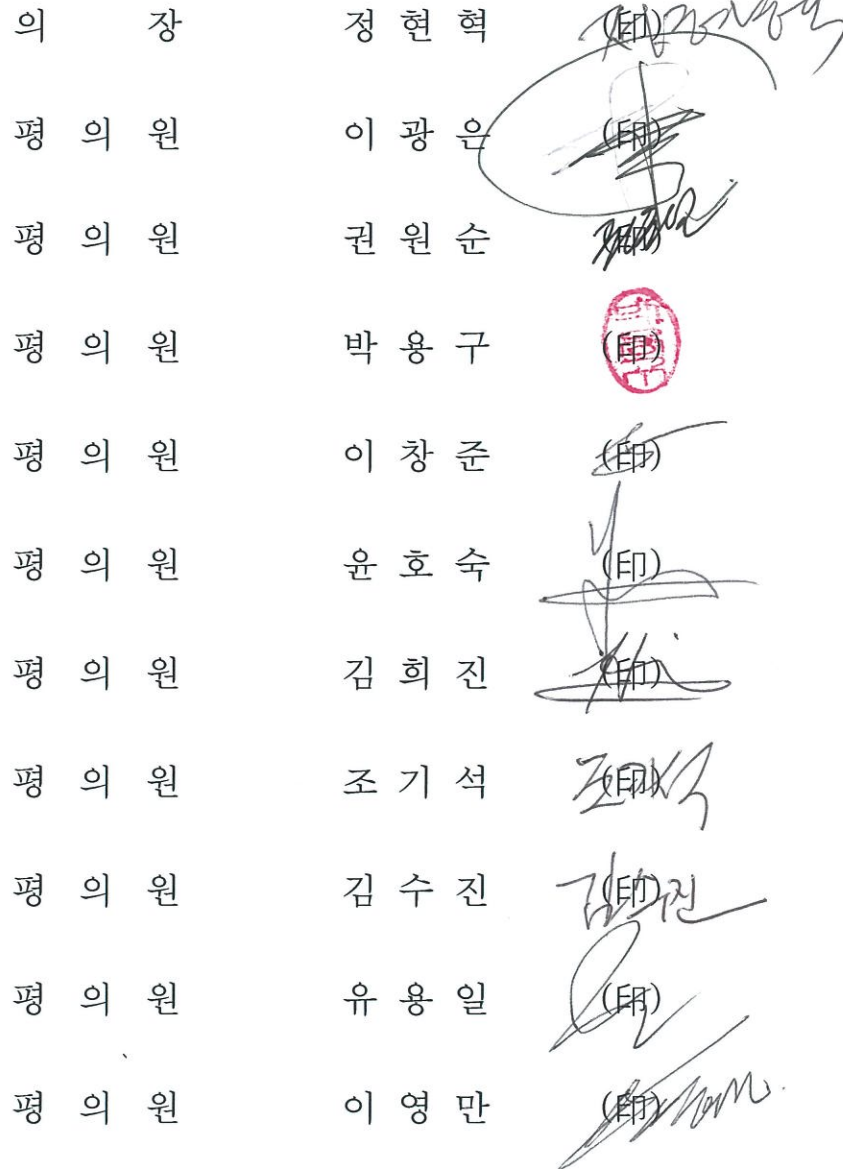 의 장 정 현 혁 (印)
평 의 원 이 광 은 (印)
평 의 원 권 원 순 (印)
평 의 원 박 용 구 (印)
평 의 원 이 창 준 (印)
평 의 원 윤 호 숙 (印)
평 의 원 김 희 진 (印)
평 의 원 조 기 석 (印) 조기석
평 의 원 김 수 진 (印) 김수진
평 의 원 유 용 일 (印)
평 의 원 이 영 만 (印)